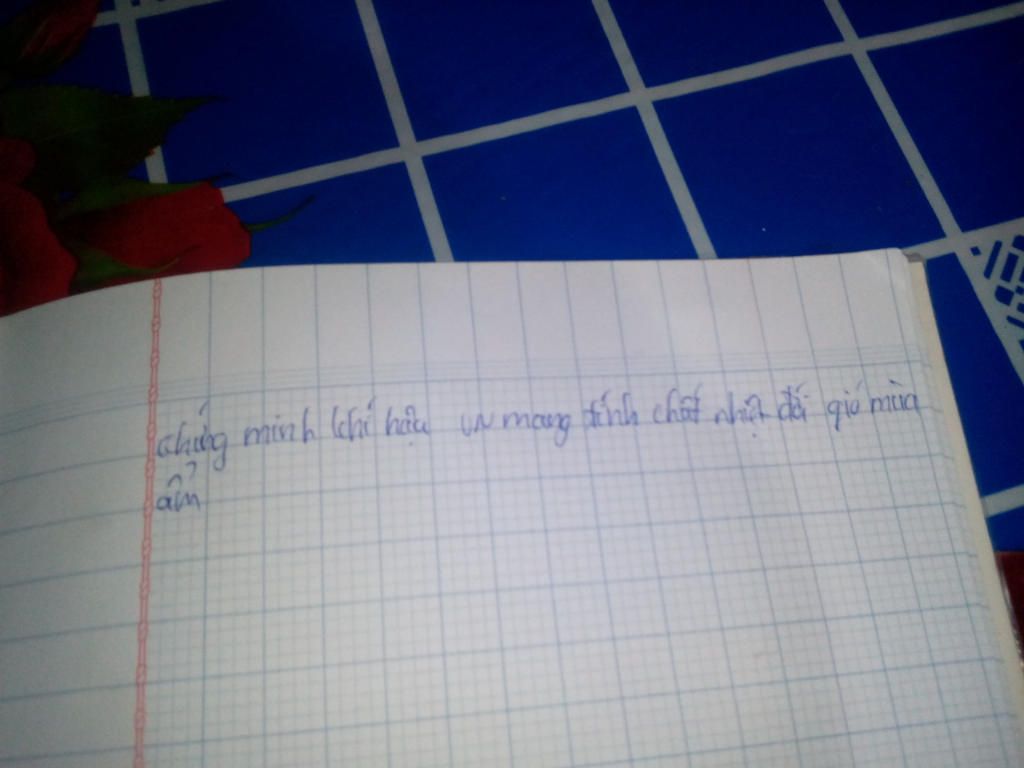 chứng minh khí hậu VN mang tính chất nhiệt đới gió mùa
ẩm